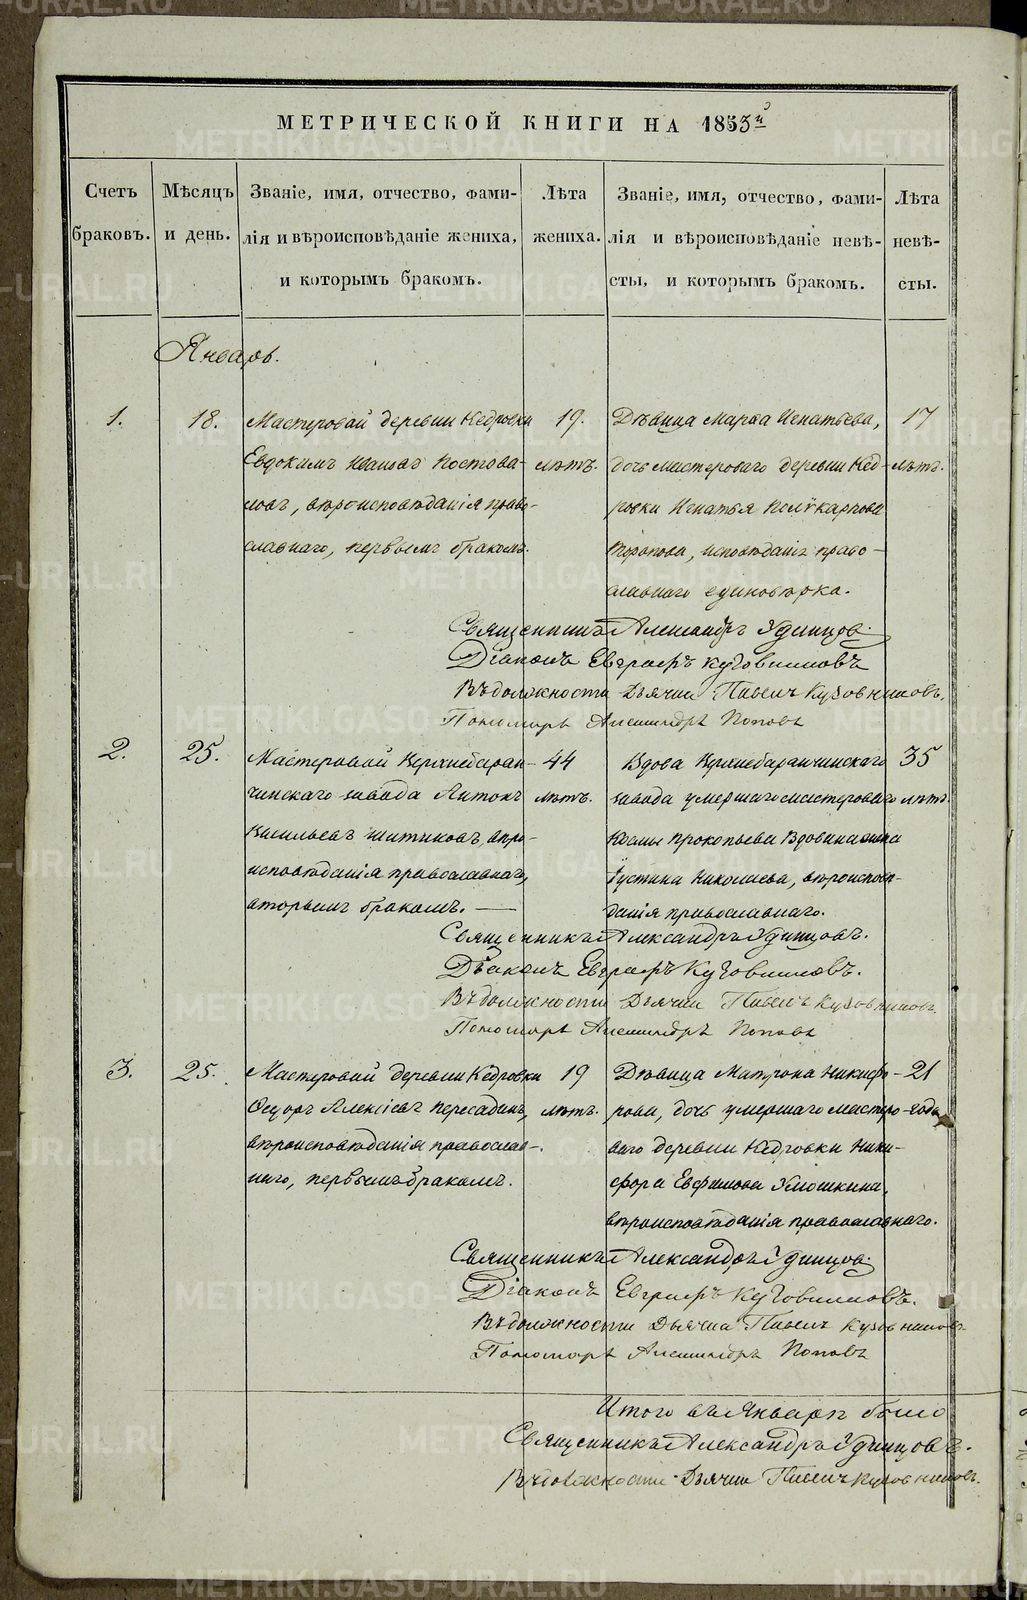 МЕТРИЧЕСКОЙ КНИГИ НА 1853й
Счетъ браковъ.
Мѣсяцъ и день.
Званіе, имя, отчество, фами-
лія и вѣроисповѣданіе жениха,
и которымъ бракомъ.
Лѣта
жениха.
Званіе, имя, отчество, фами-
лія и вѣроисповѣданіе невѣ-
сты, и которымъ бракомъ.
Лѣта
невѣ-
сты.
Январь.
1.
18.
Мастеровой деревни Кедровки
Евдокимъ Ивановъ Костова-
ловъ, вѣроисповѣданія право-
славнаго, первымъ бракомъ.
19.
лѣтъ.
Дѣвица Марѳа Игнатьева,
дочь мастероваго деревни Кед-
ровки Игнатья Поликарпова
исповѣданія право-
славнаго единовѣрка.
17
лѣтъ.
Священникъ Александръ Удинцовъ
Діаконъ Евграфъ Кузовниковъ
Въ должности Дьячка Павелъ Кузовниковъ.
Пономарь Александръ Поповъ
2.
25.
Мастеровой Верхнебаран-
чинскаго завода Антонъ
Васильевъ Шитиковъ, вѣро-
исповѣданія православнаго,
вторымъ бракомъ. —
44
лѣтъ.
Вдова Верхнебаранчинскаго
завода умершаго мастероваго
Космы Прокопьева Вдовина жена
Іустина Николаева, вѣроисповѣ-
данія православнаго.
35
лѣтъ.
Священникъ Александръ Удинцовъ.
Діаконъ Евграфъ Кузовниковъ.
Въ должности Дьячка Павелъ Кузовниковъ.
Пономарь Александръ Поповъ
3.
25.
Мастеровой деревни Кедровки
Ѳедоръ Алексѣевъ Пересадинъ,
вѣроисповѣданія православ-
наго, первымъ бракомъ.
19
лѣтъ.
Дѣвица Матрона Никифо-
рова, дочь умершаго мастеро-
ваго деревни Кедровки Ники-
фора Евфимова
вѣроисповѣданія православнаго.
21
годъ
Священникъ Александръ Удинцовъ.
Діаконъ Евграфъ Кузовниковъ.
Въ должности Дьячка Павелъ Кузовниковъ
Пономарь Александръ Поповъ
Итого въ Январѣ было
Священникъ Александръ Удинцовъ.
Въ должности Дьячка Павелъ Кузовниковъ.
METRIKI.GASO-URAL.RU